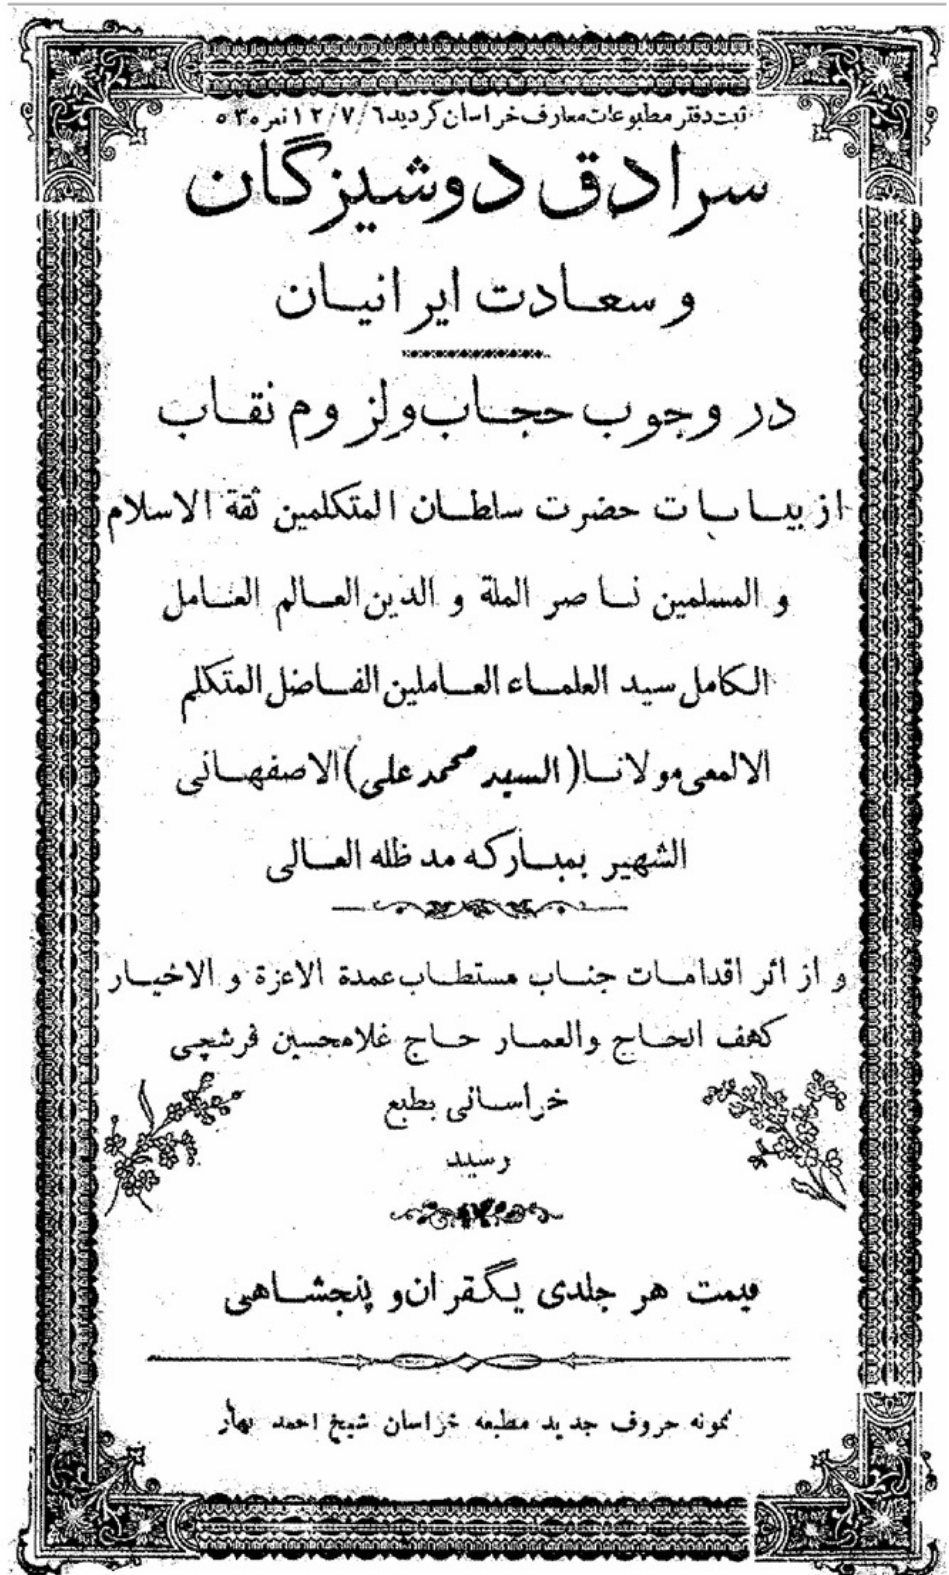 ثبت دفتر مطبوعات معارف خراسان گردید ۱۲/۷/۶ نمره
سرادق دوشیزگان
و سعادت ایرانیان
در وجوب حجاب و لزوم نقاب
از بیانات حضرت سلطان المتکلمین ثقة الاسلام
و المسلمین ناصر الملة و الدین العالم العامل
الکامل سید العلماء العاملین الفاضل المتکلم
الالمعی مولانا (السید محمد علی) الاصفهانی
الشهیر بمبارکه مد ظله العالی
و از اثر اقدامات جناب مستطاب عمدة الاعزة و الاخیار
کهف الحاج والعمار حاج غلامحسین فرشچی
خراسانی بطبع
رسید
قیمت هر جلدی یکقران و پنجشاهی
نمونه حروف جدید مطبعه خراسان شیخ احمد بهار